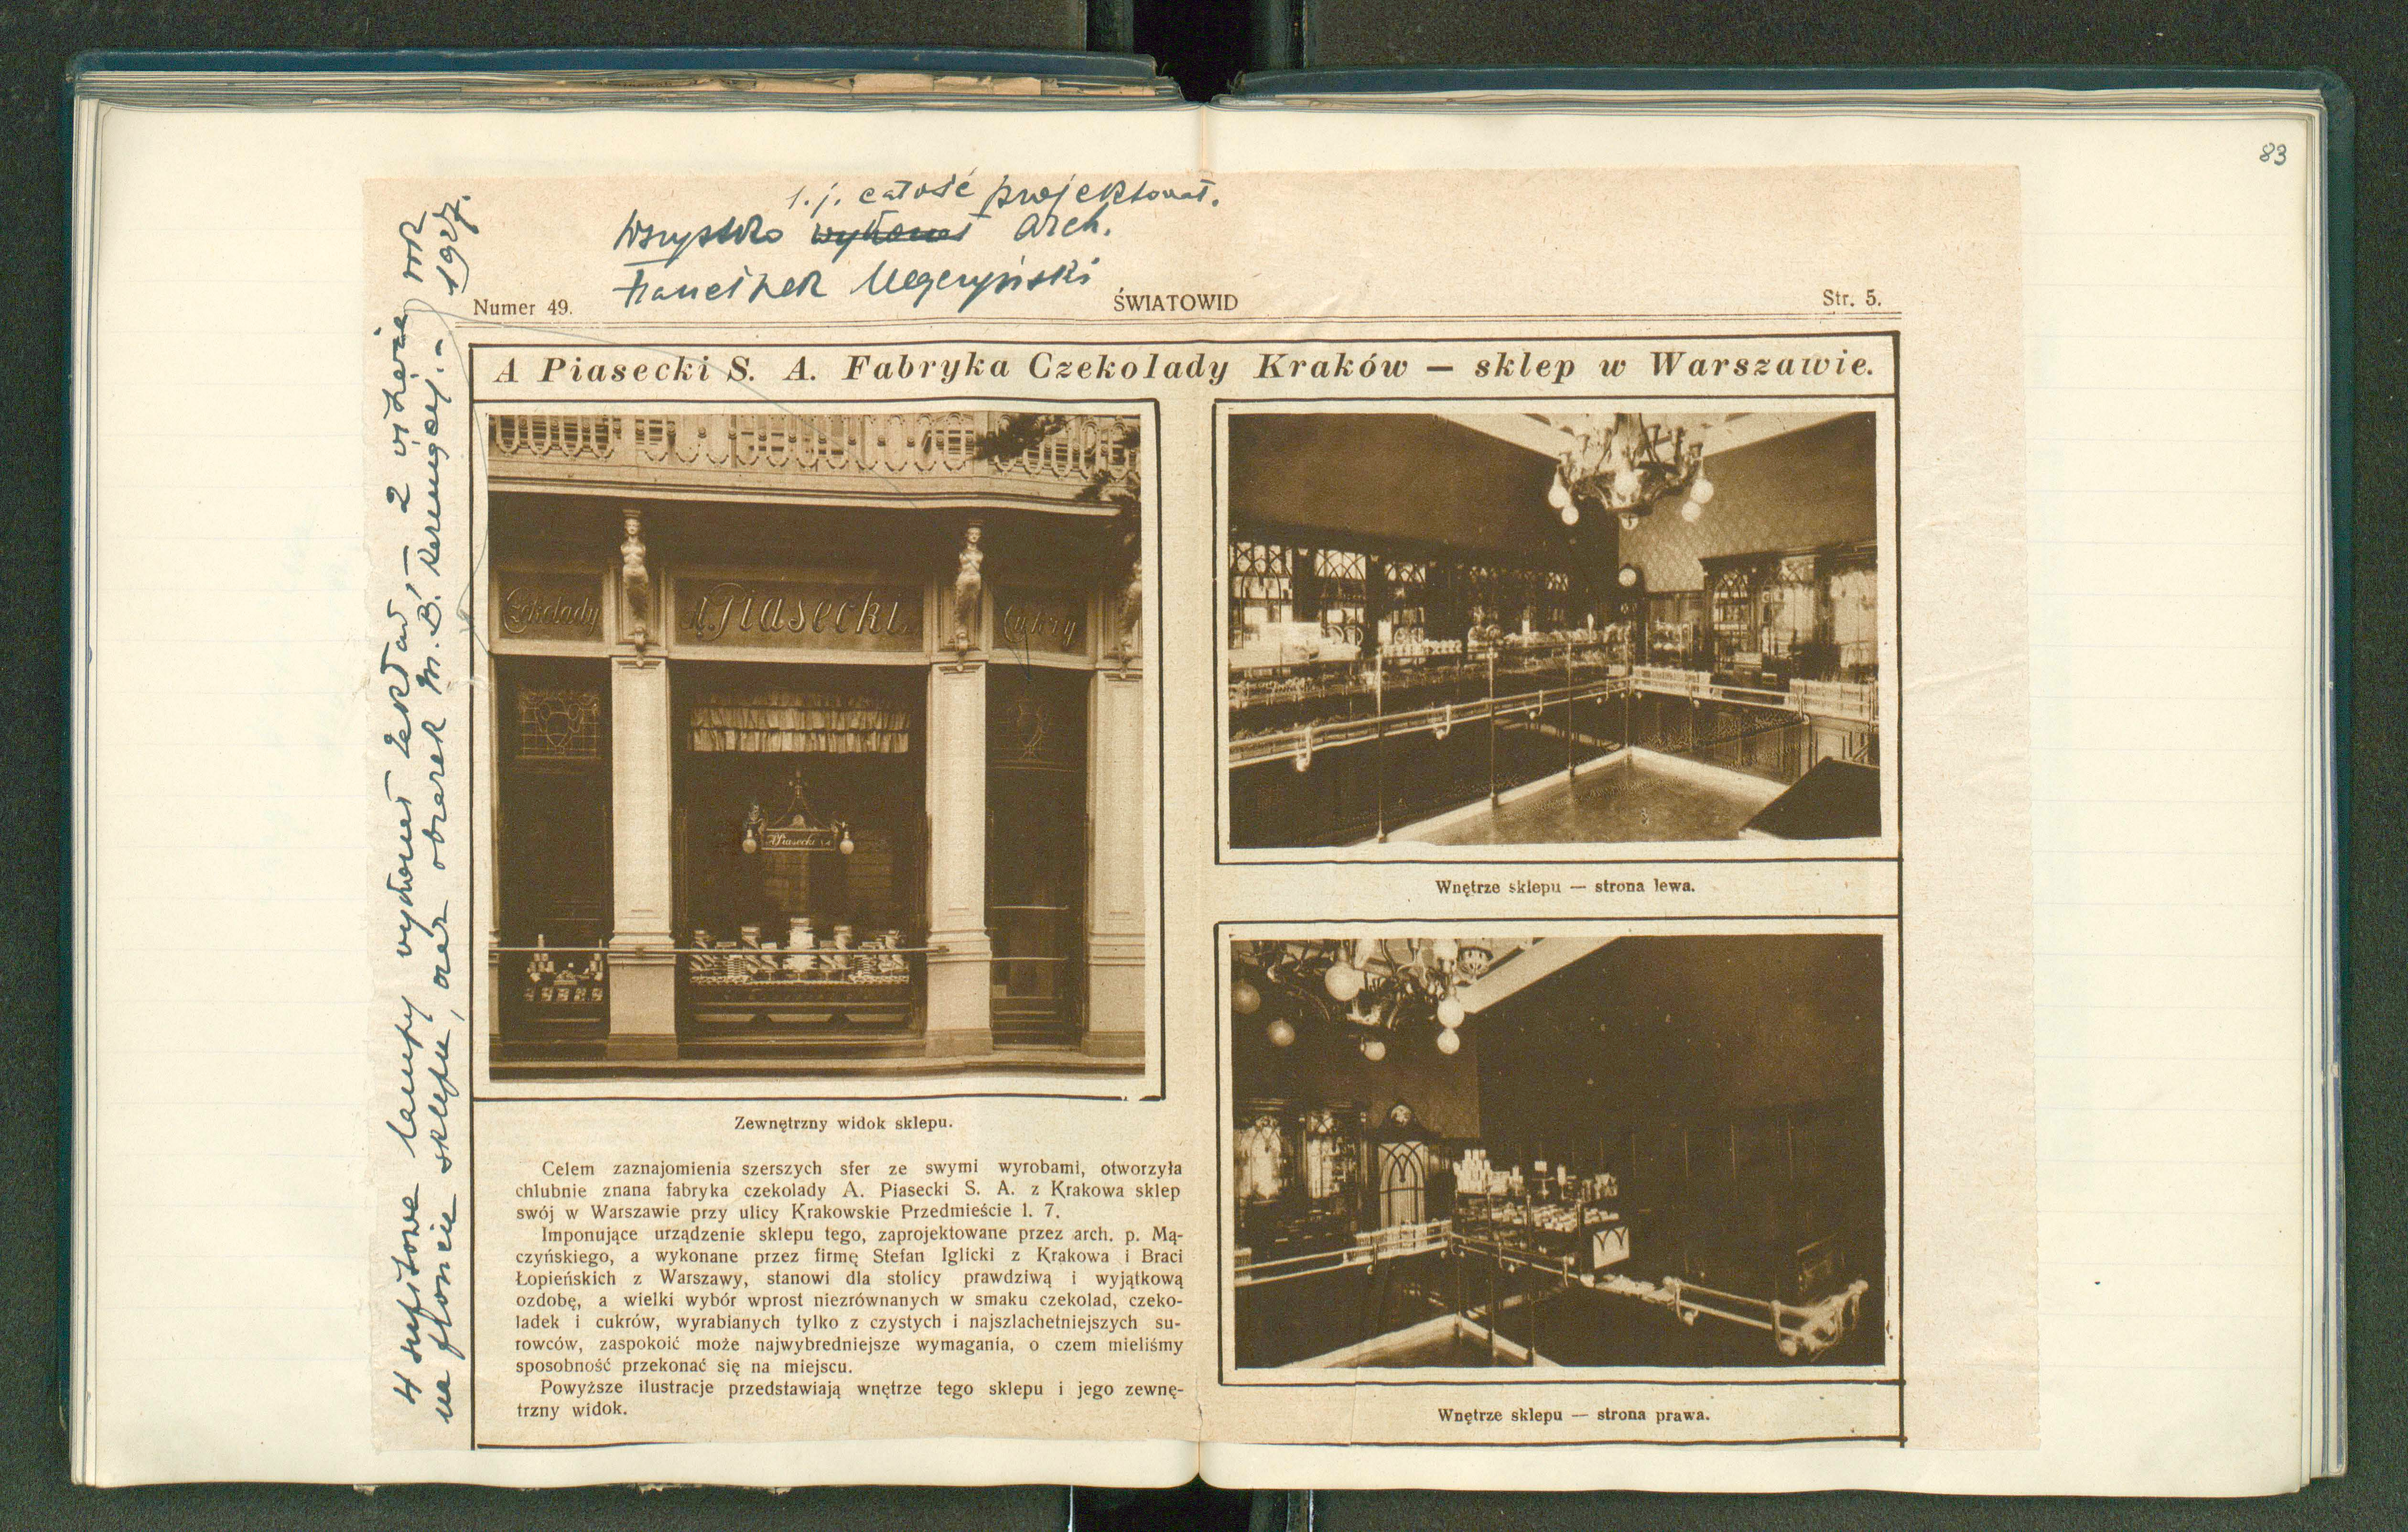 83
t. j. całość projektował.
Wszystko wykonał arch.
Franciszek Mączyński
Numer 49.
ŚWIATOWID
Str. 5.
4 sufitowe lampy wykonał zakład – 2 wiszące rok
na froncie sklepu, oraz obrazek M. B. 1927.
A Piasecki S. A. Fabryka Czekolady Kraków — sklep w Warszawie.
Czekolady
A. Piasecki
Cukry
A Piasecki S.A.
Zewnętrzny widok sklepu.
Celem zaznajomienia szerszych sfer ze swymi wyrobami, otworzyła
chlubnie znana fabryka czekolady A. Piasecki S. A. z Krakowa sklep
swój w Warszawie przy ulicy Krakowskie Przedmieście l. 7.
Imponujące urządzenie sklepu tego, zaprojektowane przez arch. p. Mą-
czyńskiego, a wykonane przez firmę Stefan Iglicki z Krakowa i Braci
Łopieńskich z Warszawy, stanowi dla stolicy prawdziwą i wyjątkową
ozdobę, a wielki wybór wprost niezrównanych w smaku czekolad, czeko-
ladek i cukrów, wyrabianych tylko z czystych i najszlachetniejszych su-
rowców, zaspokoić może najwybredniejsze wymagania, o czem mieliśmy
sposobność przekonać się na miejscu.
Powyższe ilustracje przedstawiają wnętrze tego sklepu i jego zewnę-
trzny widok.
Wnętrze sklepu — strona lewa.
Wnętrze sklepu — strona prawa.